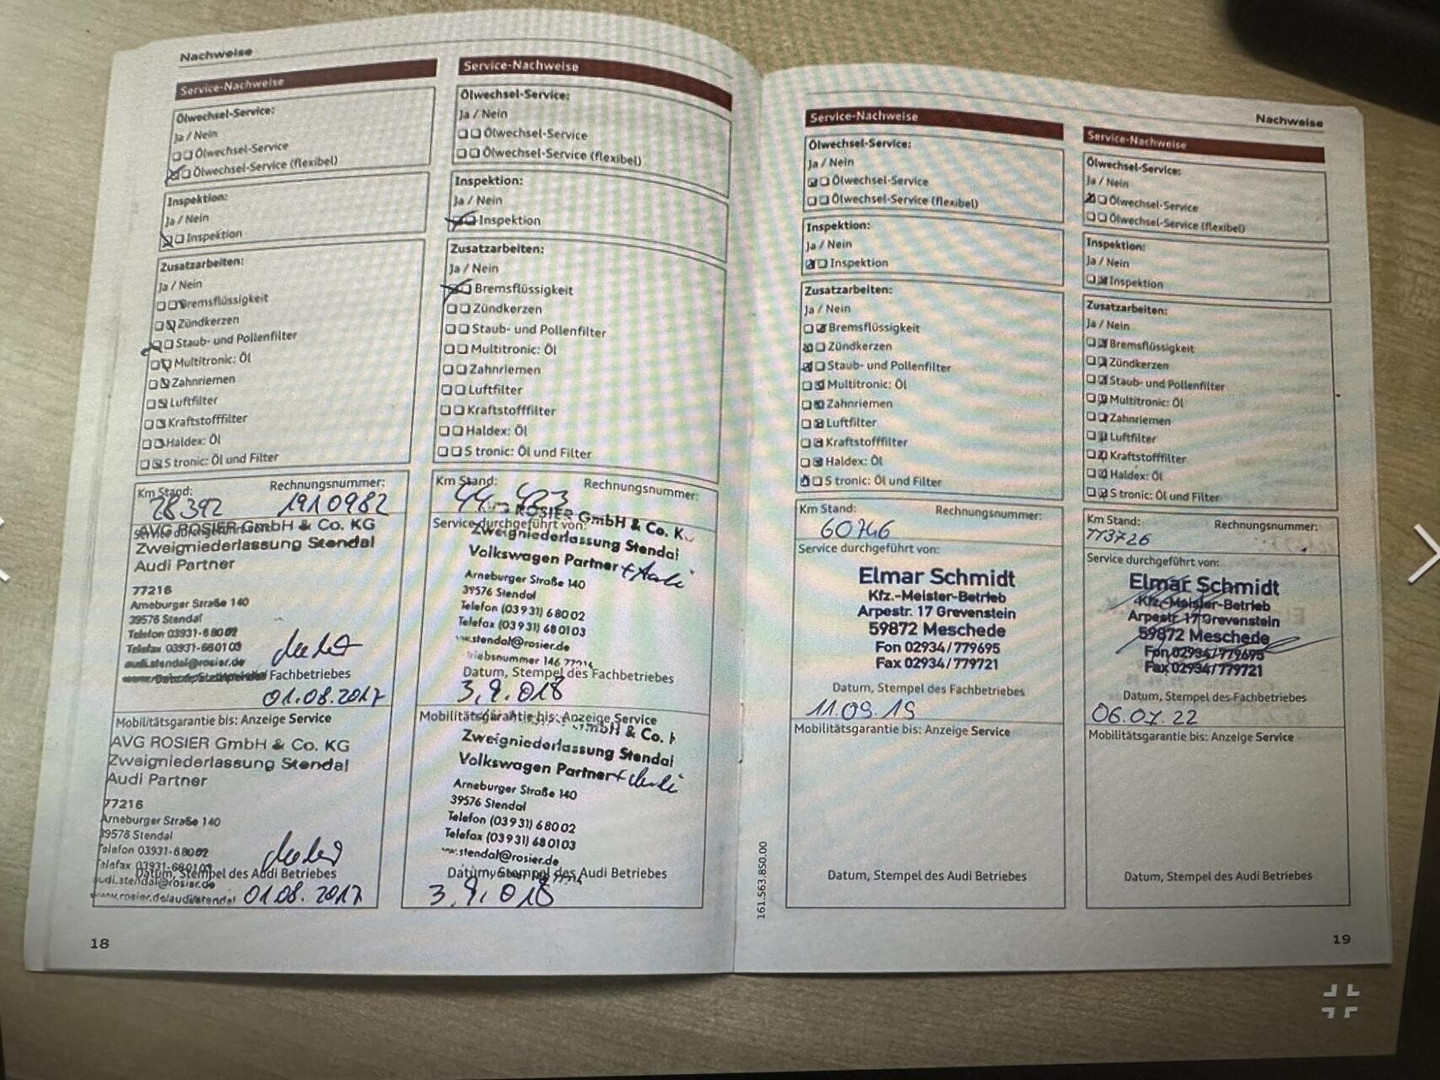 Nachweise
Service-Nachweise
Ölwechsel-Service:
Ja / Nein
Ölwechsel-Service
Ölwechsel-Service (flexibel)
Inspektion:
Ja / Nein
Inspektion
Zusatzarbeiten:
Ja / Nein
Bremsflüssigkeit
Zündkerzen
Staub- und Pollenfilter
Multitronic: Öl
Zahnriemen
Luftfilter
Kraftstofffilter
Haldex: Öl
S tronic: Öl und Filter
Km Stand: Rechnungsnummer:
28392 1910982
AVG ROSIER GmbH & Co. KG
Zweigniederlassung Stendal
Audi Partner
77216
Arneburger Straße 140
39576 Stendal
Telefon 03931-68002
Telefax 03931-680103
audi.stendal@rosier.de
Fachbetriebes
01.08.2017
Mobilitätsgarantie bis: Anzeige Service
AVG ROSIER GmbH & Co. KG
Zweigniederlassung Stendal
Audi Partner
77216
Arneburger Straße 140
39576 Stendal
Telefon 03931-68002
Telefax 03931-680103
Datum, Stempel des Audi Betriebes
audi.stendal@rosier.de
www.rosier.de/audi/stendal 01.08.2017
18
Service-Nachweise
Ölwechsel-Service:
Ja / Nein
Ölwechsel-Service
Ölwechsel-Service (flexibel)
Inspektion:
Ja / Nein
Inspektion
Zusatzarbeiten:
Ja / Nein
Bremsflüssigkeit
Zündkerzen
Staub- und Pollenfilter
Multitronic: Öl
Zahnriemen
Luftfilter
Kraftstofffilter
Haldex: Öl
S tronic: Öl und Filter
Km Stand: Rechnungsnummer:
ROSIER GmbH & Co. K
Service durchgeführt von:
Zweigniederlassung Stendal
Volkswagen Partner + Audi
Arneburger Straße 140
39576 Stendal
Telefon (03931) 68002
Telefax (03931) 680103
stendal@rosier.de
Datum, Stempel des Fachbetriebes
3.9.018
Mobilitätsgarantie bis: Anzeige Service
GmbH & Co.
Zweigniederlassung Stendal
Volkswagen Partner + Audi
Arneburger Straße 140
39576 Stendal
Telefon (03931) 68002
Telefax (03931) 680103
stendal@rosier.de
Datum, Stempel des Audi Betriebes
3.9.018
Nachweise
Service-Nachweise
Ölwechsel-Service:
Ja / Nein
Ölwechsel-Service
Ölwechsel-Service (flexibel)
Inspektion:
Ja / Nein
Inspektion
Zusatzarbeiten:
Ja / Nein
Bremsflüssigkeit
Zündkerzen
Staub- und Pollenfilter
Multitronic: Öl
Zahnriemen
Luftfilter
Kraftstofffilter
Haldex: Öl
S tronic: Öl und Filter
Km Stand: Rechnungsnummer:
60746
Service durchgeführt von:
Elmar Schmidt
Kfz.-Meister-Betrieb
Arpestr. 17 Grevenstein
59872 Meschede
Fon 02934/779695
Fax 02934/779721
Datum, Stempel des Fachbetriebes
11.09.19
Mobilitätsgarantie bis: Anzeige Service
Datum, Stempel des Audi Betriebes
161.563.850.00
Service-Nachweise
Ölwechsel-Service:
Ja / Nein
Ölwechsel-Service
Ölwechsel-Service (flexibel)
Inspektion:
Ja / Nein
Inspektion
Zusatzarbeiten:
Ja / Nein
Bremsflüssigkeit
Zündkerzen
Staub- und Pollenfilter
Multitronic: Öl
Zahnriemen
Luftfilter
Kraftstofffilter
Haldex: Öl
S tronic: Öl und Filter
Km Stand: Rechnungsnummer:
113726
Service durchgeführt von:
Elmar Schmidt
Kfz.-Meister-Betrieb
Arpestr. 17 Grevenstein
59872 Meschede
Fon 02934/779695
Fax 02934/779721
Datum, Stempel des Fachbetriebes
06.07.22
Mobilitätsgarantie bis: Anzeige Service
Datum, Stempel des Audi Betriebes
19